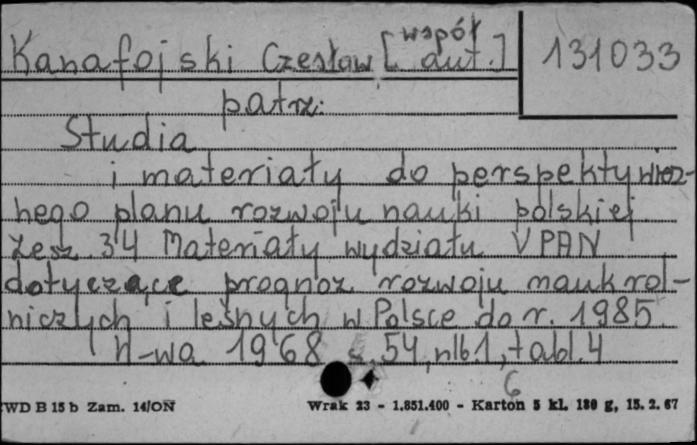 Kanafojski Czesław [współ aut.] 131033
patrz:
Studia
i materiały do perspektywicz-
nego planu rozwoju nauki polskiej
Zesz. 34 Materiały wydziału V PAN
dotyczące prognoz rozwoju nauk rol-
niczych i leśnych w Polsce do r. 1985.
W-wa 1968 s. 54, nlb 1, tabl. 4
6
WD B 15 b Zam. 14/ON Wrak 23 - 1.851.400 - Karton 5 kl. 180 g, 15. 2. 67